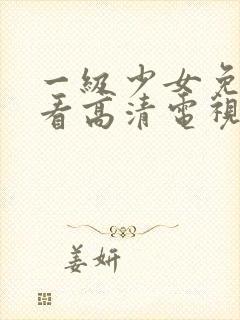 一級少女免
看高清電視
姜妍